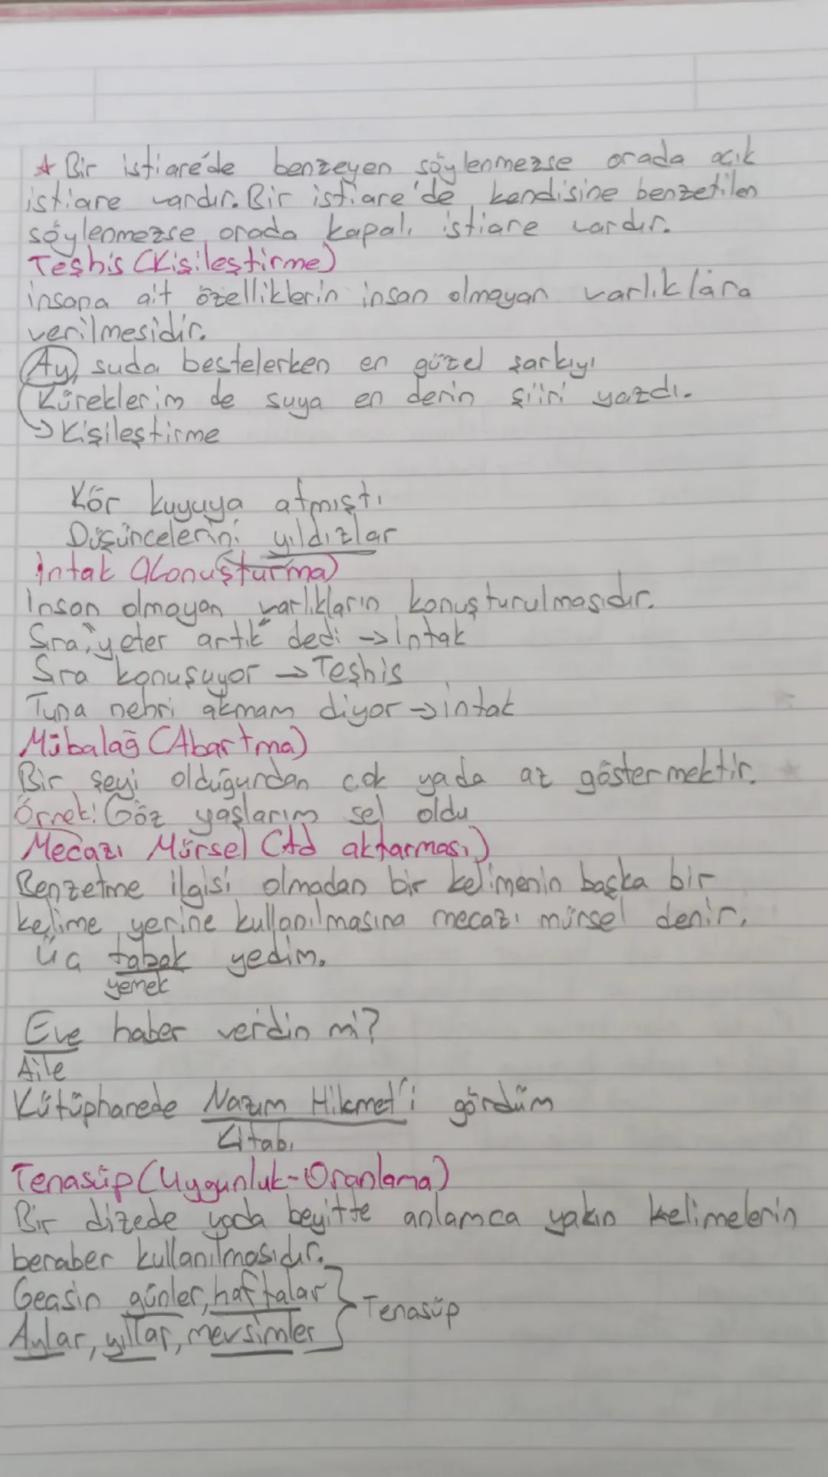 ★ Bir istiare'de benzeyen söylenmezse orada açık
istiare vardır. Bir istiare'de kendisine benzetilen
söylenmezse orada kapalı istiare vardır.
Teşhis (Kişileştirme)
insana ait özelliklerin insan olmayan varlıklara
verilmesidir.
Ay, suda bestelerken en güzel şarkıyı
Küreklerim de suya en derin şiiri yazdı.
→ Kişileştirme
Kör kuyuya atmıştı
Düşüncelerini yıldızlar
İntak (Konuşturma)
İnsan olmayan varlıkların konuşturulmasıdır.
Sıra, "yeter artık" dedi → İntak
Sıra konuşuyor → Teşhis
Tuna nehri akmam diyor → intak
Mübalağ (Abartma)
Bir şeyi olduğundan çok yada az göstermektir.
Örnek: Göz yaşlarım sel oldu
Mecazı Mürsel (Ad aktarması)
Benzetme ilgisi olmadan bir kelimenin başka bir
kelime yerine kullanılmasına mecazı mürsel denir.
Üç tabak yedim.
yemek
Eve haber verdin mi?
Aile
Kütüphanede Nazım Hikmet'i gördüm
Kitabı
Tenasüp (Uygunluk-Oranlama)
Bir dizede yada beyitte anlamca yakın kelimelerin
beraber kullanılmasıdır.
Geçsin günler, haftalar
Aylar, yıllar, mevsimler } Tenasüp